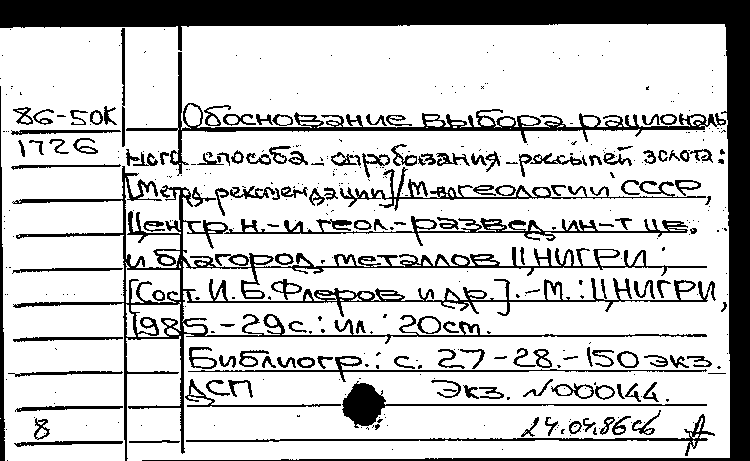 86-50К Обоснование выбора рациональ
1726 ного способа опробования россыпей золота:
[Метод. рекомендации]/М-во геологии СССР,
Центр. н.-и. геол.-развед. ин-т цв.
и благород. металлов ЦНИГРИ;
[Сост. И.Б.Флеров и др.].-М.:ЦНИГРИ,
1985.-29с.:ил.; 20см.
Библиогр.: с. 27-28.-150 экз.
ДСП Экз. №000144.
8 24.04.86